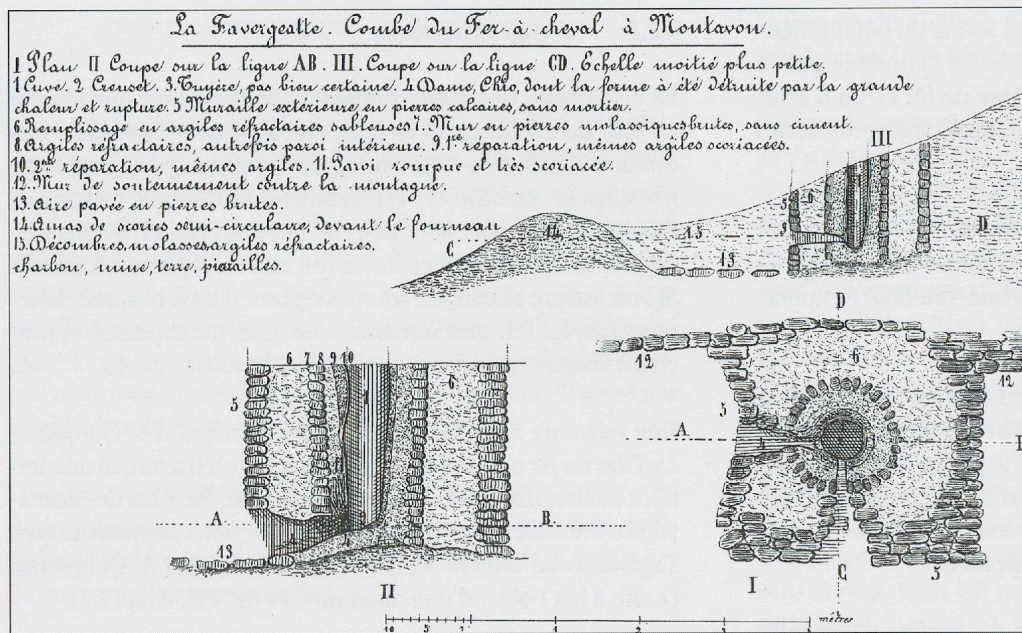 La Favergeatte. Combe du Fer-à-cheval à Montavon.
I Plan II Coupe sur la ligne AB. III. Coupe sur la ligne CD. Echelle moitié plus petite.
1 Cuve. 2 Creuset. 3. Tuyère, pas bien certaine. 4. Dame, Chio, dont la forme à été détruite par la grande
chaleur et rupture. 5 Muraille extérieure, en pierres calcaires, sans mortier.
6. Remplissage en argiles réfractaires sableuses 7. Mur en pierres molassiques brutes, sans ciment.
8. Argiles réfractaires, autrefois paroi intérieure. 9. 1re réparation, mêmes argiles scoriacées.
10. 2me réparation, mêmes argiles. 11. Paroi rompue et très scoriacée.
12. Mur de soutennement contre la montagne.
13. Aire pavée en pierres brutes.
14. Amas de scories semi-circulaire, devant le fourneau
15. Décombres, molasses, argiles réfractaires.
charbon, mine, terre, pierailles.
III
5 6
C 14 15 D
13
D
12 6 12
5
A
I C 5
6 7 8 9 10
5 6
A B
13
II
10 5 1 1 2 3 4 mètres